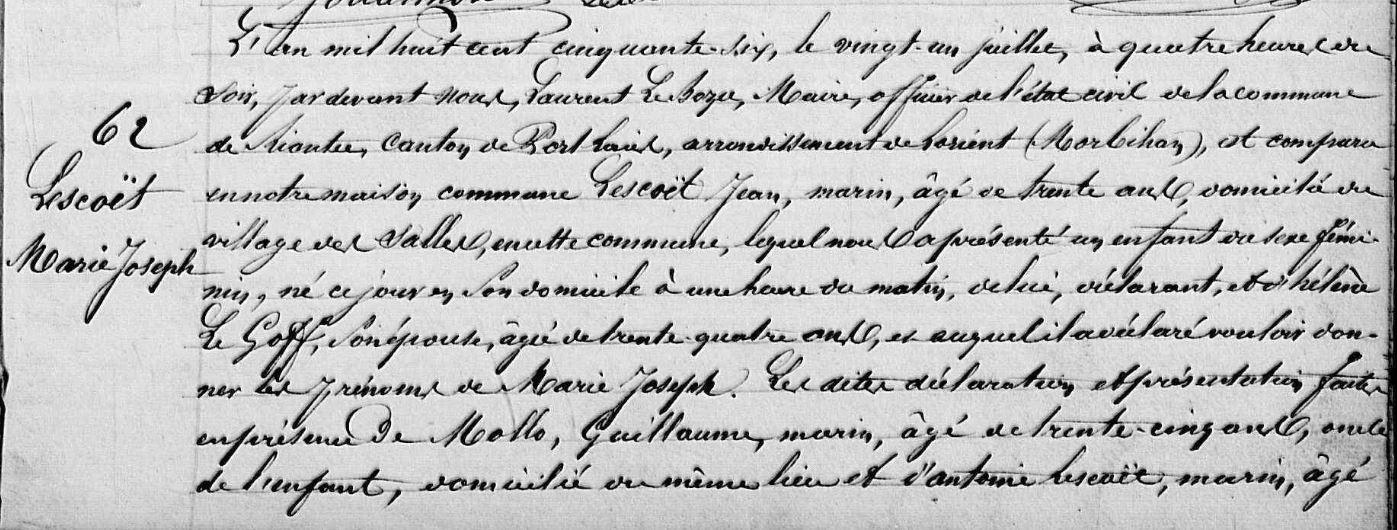 L'an mil huit cent cinquante-six, le vingt-un juillet, à quatre heures du
soir, par devant nous, Laurent Le Bozec, Maire, officier de l'état civil de la commune
62
de Riantec, canton de Port Louis, arrondissement de Lorient (Morbihan), est comparu
Lescoët
en notre maison commune Lescoët Jean, marin, âgé de trente ans, domicilié au
village des Salles, en cette commune, lequel nous a présenté un enfant du sexe fémi-
Marie Joseph
nin, né ce jour en son domicile à une heure du matin, de lui, déclarant, et d'hélène
Le Goff, son épouse, âgée de trente-quatre ans, et auquel il a déclaré vouloir don-
ner les prénoms de Marie Joseph. Les dites déclaration et présentation faites
en présence De Mollo, Guillaume, marin, âgé de trente-cinq ans, oncle
de l'enfant, domicilié au même lieu et d'antoine Lescoët, marin, âgé